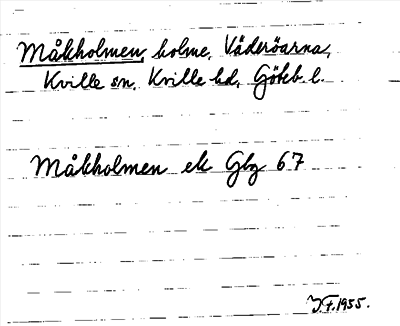 Måkholmen, holme, Väderöarna,
Kville sn, Kville hd, Göteb. l.
Måkholmen ek Glg 67
J.F. 1955.